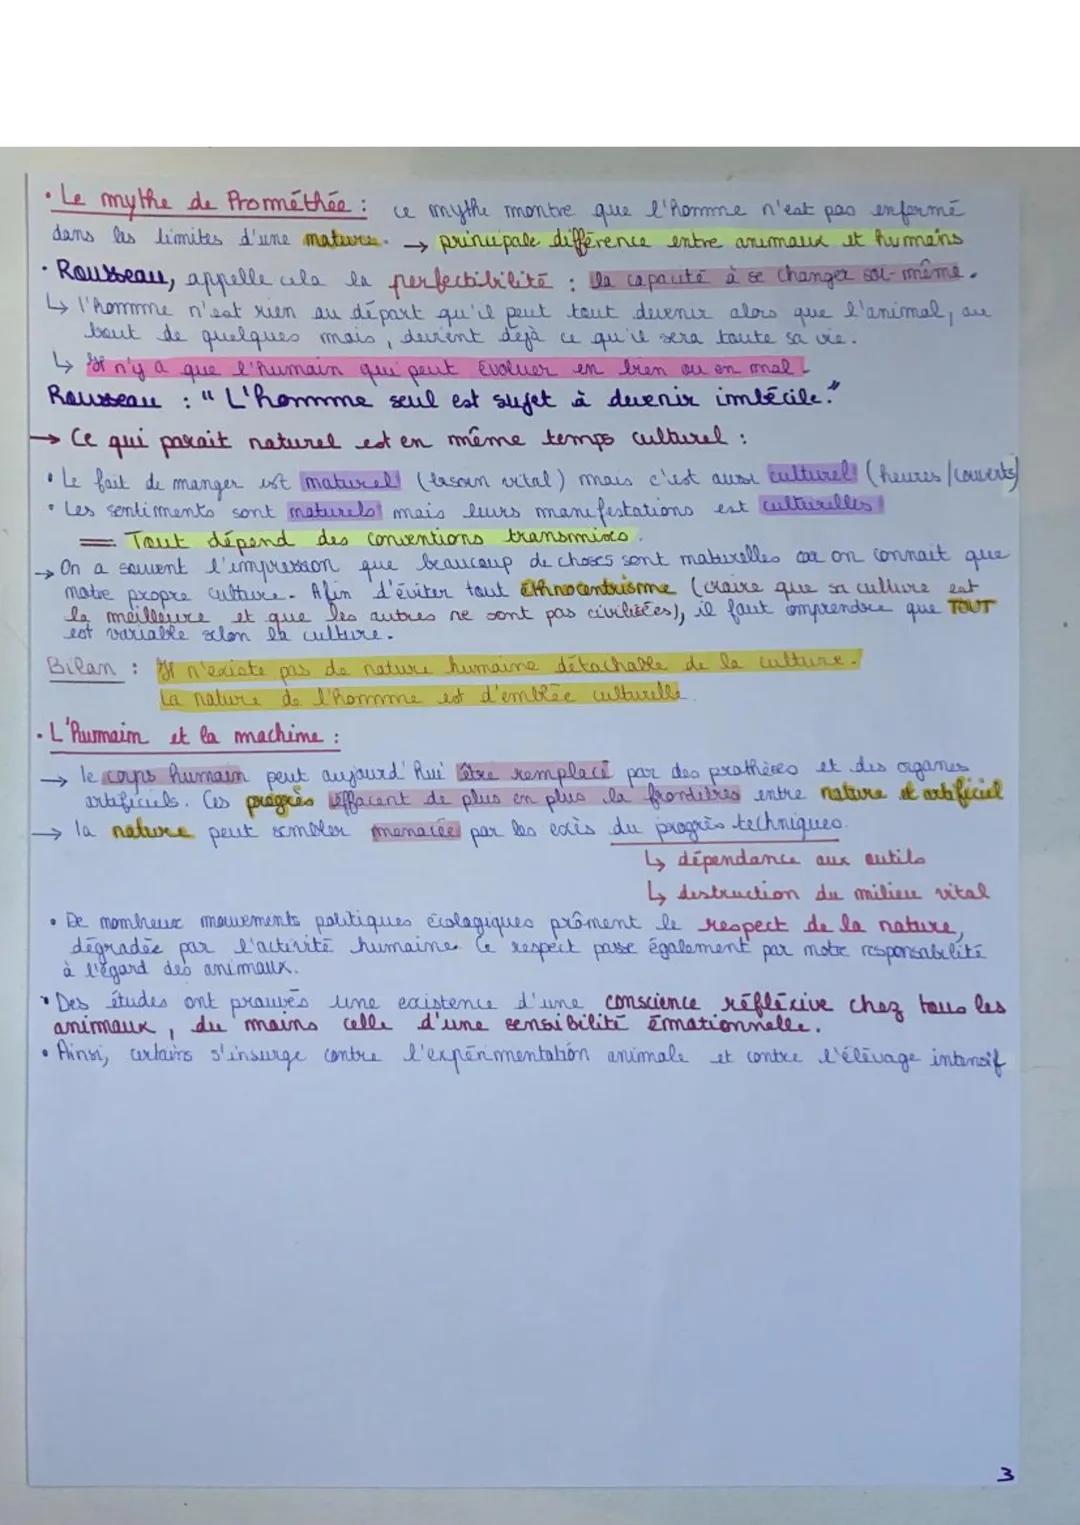 • Le mythe de Prométhée : ce mythe montre que l'homme n'est pas enfermé
dans les limites d'une nature. → principale différence entre animaux et humains
• Rousseau, appelle cela la perfectibilité : la capacité à se changer soi-même.
↳ l'homme n'est rien au départ qu'il peut tout devenir alors que l'animal, au
bout de quelques mois, devient déjà ce qu'il sera toute sa vie.
↳ Il n'y a que l'humain qui peut évoluer en bien ou en mal
Rousseau : "L'homme seul est sujet à devenir imbécile."
→ Ce qui parait naturel est en même temps culturel :
• Le fait de manger est naturel (besoin vital) mais c'est aussi culturel (heures/couverts)
• Les sentiments sont naturels mais leurs manifestations est culturelles
= Tout dépend des conventions transmises.
→ On a souvent l'impression que beaucoup de choses sont naturelles car on connait que
notre propre culture. Afin d'éviter tout éthnocentrisme (croire que sa culture est
la meilleure et que les autres ne sont pas civilisées), il faut comprendre que TOUT
est variable selon la culture.
Bilan : Il n'existe pas de nature humaine détachable de la culture.
La nature de l'homme est d'emblée culturelle.
• L'humain et la machine :
→ le corps humain peut aujourd'hui être remplacé par des prothèses et des organes
artificiels. Ces progrès effacent de plus en plus la frontières entre nature et artificiel
→ la nature peut sembler menacée par les excès du progrès techniques.
↳ dépendance aux outils
↳ destruction du milieu vital
• De nombreux mouvements politiques écologiques prônent le respect de la nature,
dégradée par l'activité humaine. Ce respect passe également par notre responsabilité
à l'égard des animaux.
• Des études ont prouvés une existence d'une conscience réfléxive chez tous les
animaux, du moins celle d'une sensibilité émotionnelle.
• Ainsi, certains s'insurge contre l'expérimentation animale et contre l'élevage intensif
3